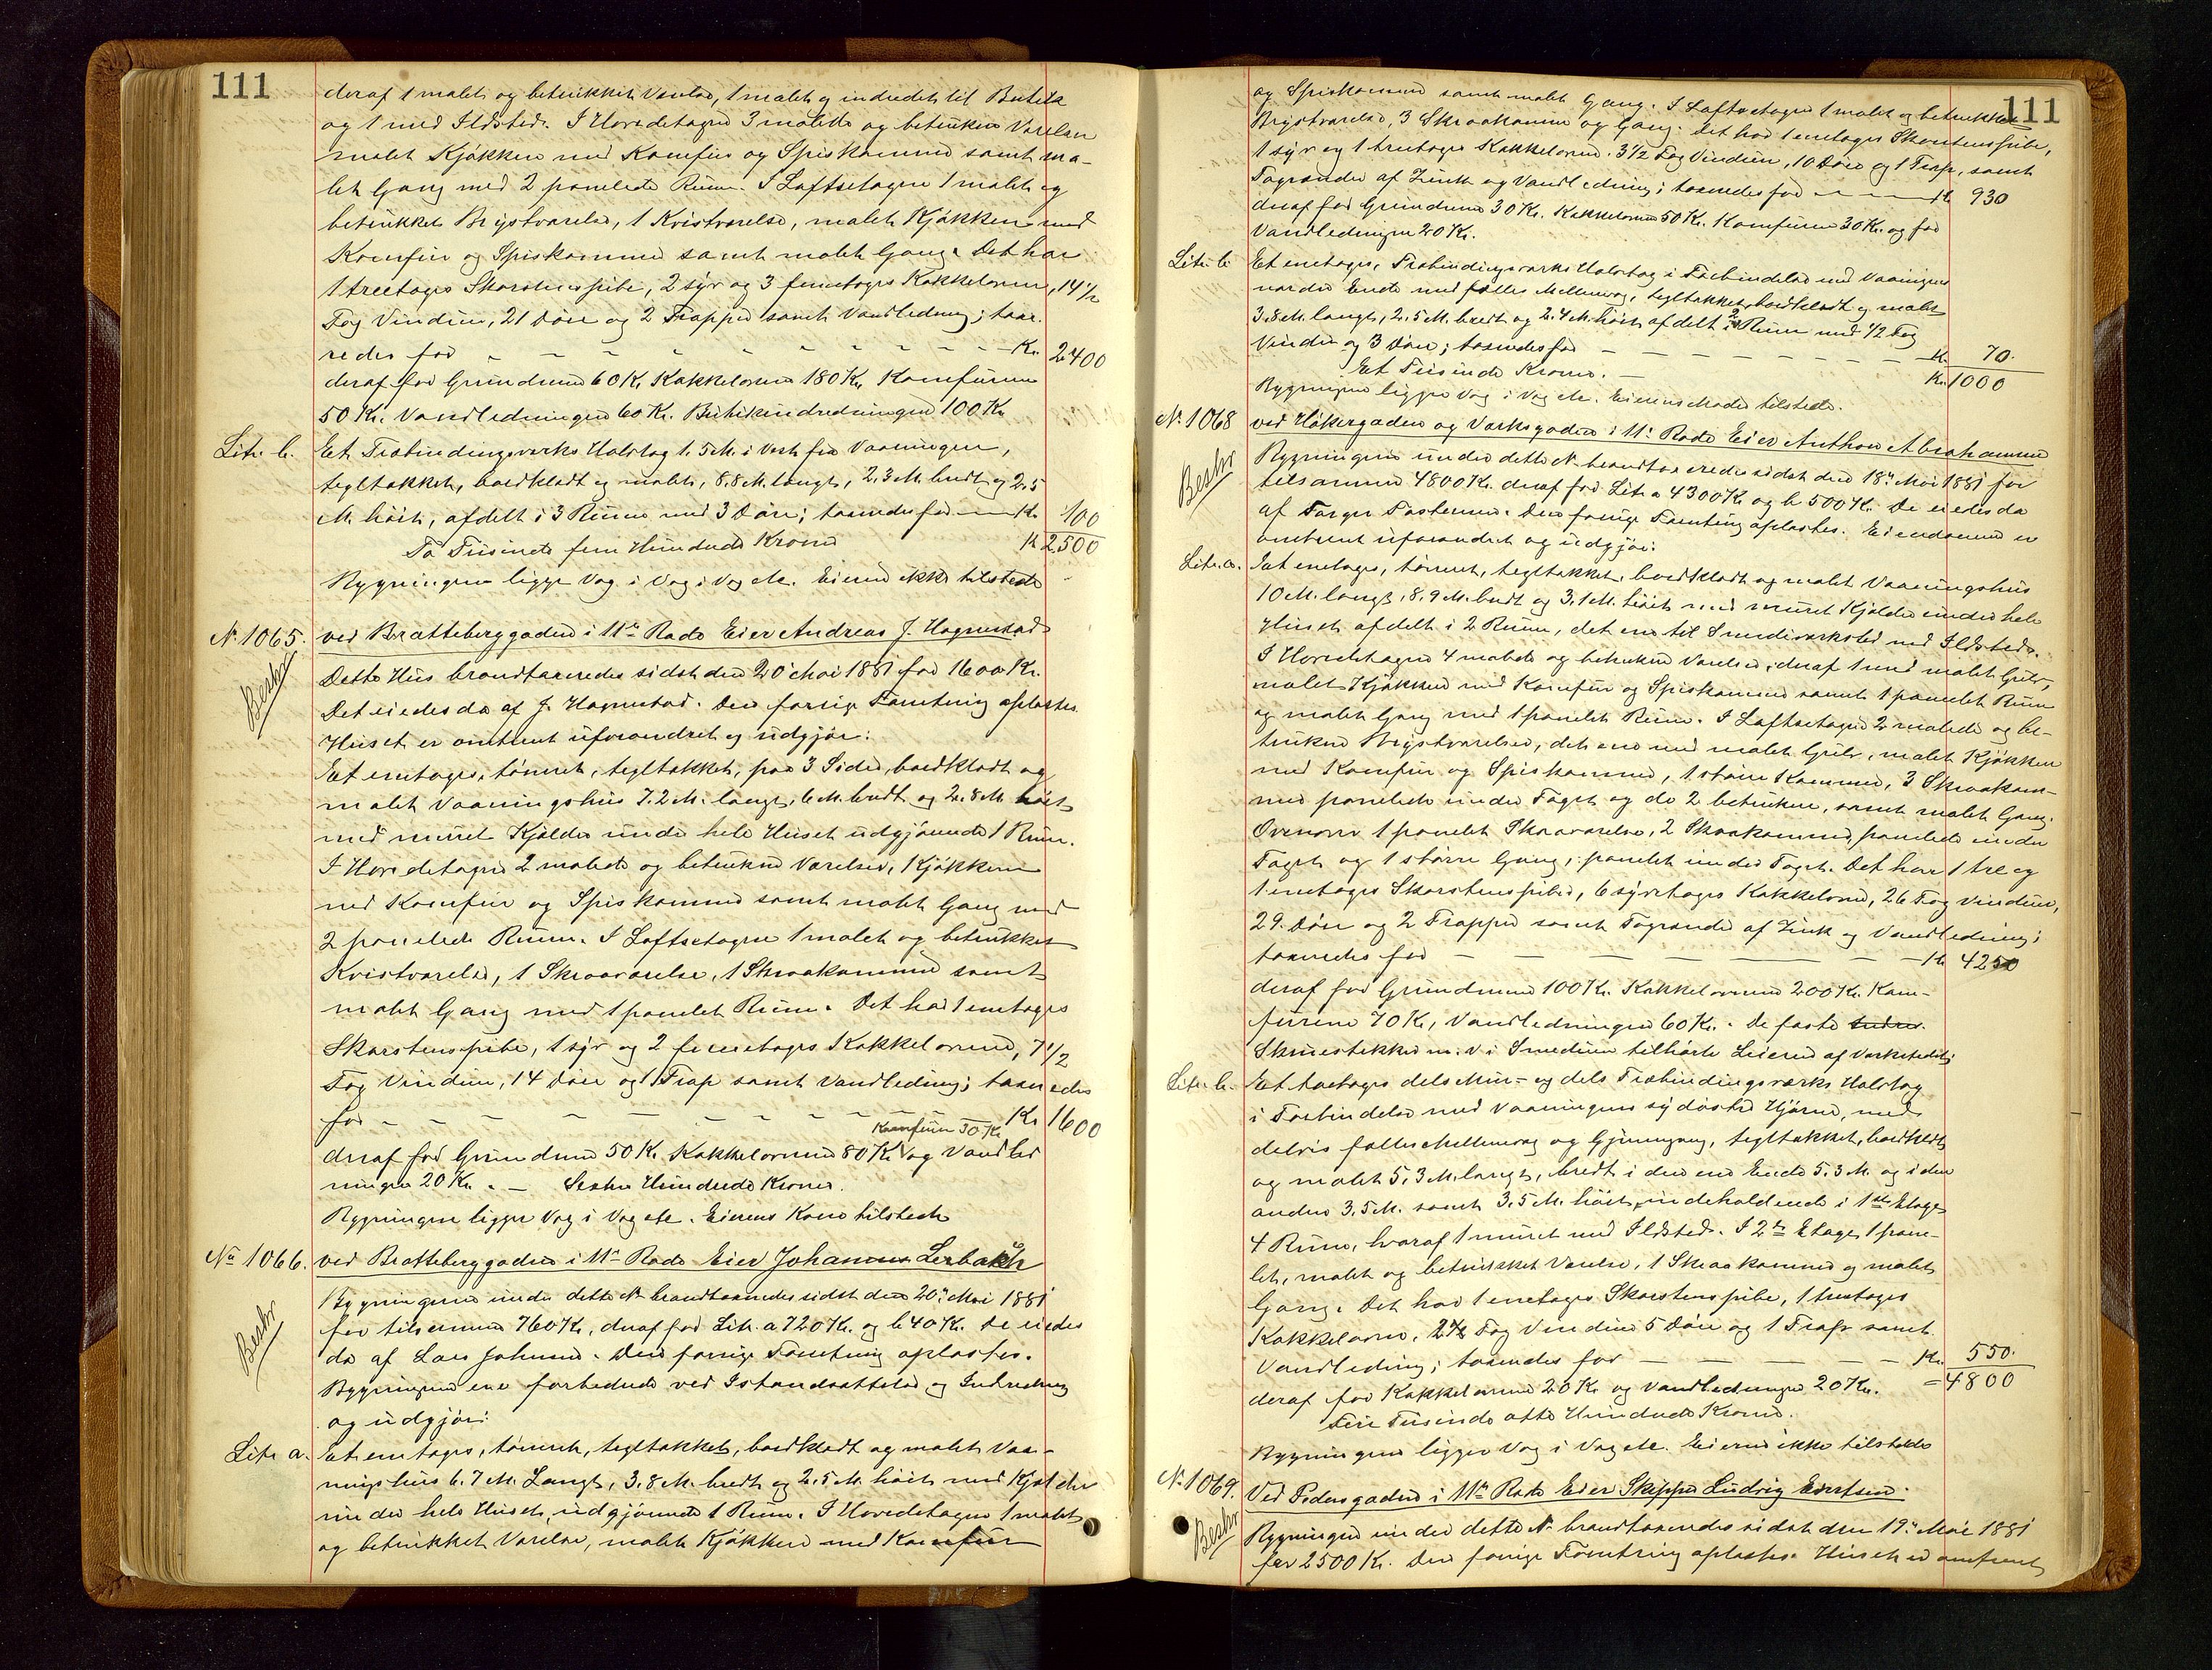 111
deraf 1 malet og betrukket Værelse, 1 malet og indredet til Butik
og 1 med Ildsted. I Hovedetagen 3 malede og betrukne Værelser
malet Kjøkken med Komfur og Spiskammer samt ma-
let Gang med 2 panelede Rum. I Loftsetagen 1 malet og
betrukket Brystværelse, 1 Kvistværelse, malet Kjøkken med
Komfur og Spiskammer samt malet Gang. Det har
1 treetages Skorstenspibe, 2 syv og 3 femetages Kakkelovne, 14 1/2
Fag Vinduer, 21 Døre og 2 Trapper samt Vandledning; taxe-
redes for - - - - - - - - - - Kr. 2400
deraf for Grundmur 60 Kr. Kakkelovne 180 Kr. Komfurene
50 Kr. Vandledningen 60 Kr. Butikindredningen 100 Kr.
Litr. b. Et Træbindingsværks Halvtag 1.5 M. i Vest fra Vaaningen,
tegltækket, bordklædt og malet, 8.8 M. langt, 2.3 M. bredt og 2.5
M. høit, afdelt i 3 Rum med 3 Døre; taxeredes for — Kr. 100
To Tusinde fem Hundrede Kroner Kr. 2500
Bygningen ligger Væg i Væg i Væg etc. Eieren ikke tilstede
No. 1065. ved Bratteberggaden i 11te Rode Eier Andreas J. Hognestad
Beskr
Dette Hus brandtaxeredes sidst den 20de Mai 1881 for 1600 Kr.
Det eiedes da af J. Hognestad. Den forrige Taxtning oplæstes.
Huset er omtrent uforandret og udgjør:
Et enetages, tømret, tegltækket, paa 3 Sider, bordklædt og
malet Vaaningshus 7.2 M. langt, 6 M. bredt og 2.8 M. høit
med muret Kjelder under hele Huset udgjørende 1 Rum.
I Hovedetagen 2 malede og betrukne Værelser, 1 Kjøkken
med Komfur og Spiskammer samt malet Gang med
2 panelede Rum. I Loftsetagen 1 malet og betrukket
Kvistværelse, 1 Skraaværelse, 1 Skraakammer samt
malet Gang med 1 panelet Rum. Det har 1 enetages
Skorstenspibe, 1 syv og 2 femetages Kakkelovne, 7 1/2
Fag Vinduer, 14 Døre og 1 Trap samt Vandledning; taxeredes
for - - - - - - - - - Kr. 1600
Komfuren 30 Kr.
deraf for Grundmur 50 Kr. Kakkelovne 80 Kr. og Vandled
ningen 20 Kr. — Sexten Hundrede Kroner.
Bygningen ligger Væg i Væg etc. Eierens Kone tilstede
No. 1066. ved Bratteberggaden i 11te Rode Eier Johannes Lerbækh
Beskr
Bygningerne under dette No. brandtaxeredes sidst den 20de Mai 1881
for tilsammen 760 Kr., deraf for Litr. a 720 Kr. og b 40 Kr. De eiedes
da af Lars Johnsen. Den forrige Taxtning oplæstes.
Bygningerne ere forbedrede ved Istandsættelse og Indredning
og udgjør:
Litr. a. Et enetages, tømret, tegltækket, bordklædt og malet Vaa-
ningshus 6.7 M. Langt, 3.8 M. bredt og 2.5 M. høit med Kjelder
under hele Huset, udgjørende 1 Rum. I Hovedetagen 1 malet
og betrukket Værelse, malet Kjøkken med Komfur
111
og Spiskammer samt malet Gang. I Loftsetagen 1 malet og betrukket
Brystværelse, 3 Skraakamre og Gang. Det har 1 enetages Skorstenspibe,
1 syv og 1 treetages Kakkelovne. 3 1/2 Fag Vinduer, 10 Døre og 1 Trap, samt
Tagrender af Zink og Vandledning; taxeredes for - - - Kr. 930
deraf for Grundmur 30 Kr. Kakkelovne 50 Kr. Komfuren 30 Kr. og for
Vandledningen 20 Kr.
Litr. b. Et enetages, Træbindingsværks Halvtag i Forbindelse med Vaaningens
nordre Ende med fælles Mellemvæg, tegltækket, bordklædt og malet
3.8 M. langt, 2.5 M. bredt og 2.4 M. høit afdelt i 2 Rum med 1/2 Fag
Vindu og 3 Døre; taxeredes for - - - - - - - Kr. 70.
Et Tusinde Kroner. — Kr. 1000
Bygningen ligger Væg i Væg etc. Eierens Moder tilstede.
No. 1068 ved Høkergaden og Værksgaden i 11te Rode Eier Anthon Abrahamsen
Beskr
Bygningerne under dette No. brandtaxeredes sidst den 18de Mai 1881 for
tilsammen 4800 Kr. deraf for Litr. a 4300 Kr. og b 500 Kr. De eiedes da
af Torger Torstensen. Den forrige Taxtning oplæstes. Eiendommen er
omtrent uforandret og udgjør:
Litr. a. Et enetages, tømret, tegltækket, bordklædt og malet Vaaningshus
10 M. langt, 8.9 M. bredt og 3.1 M. høit med muret Kjelder under hele
Huset afdelt i 2 Rum, det ene til Smedieværksted med Ildsted.
I Hovedetagen 4 malede og betrukne Værelser, deraf 1 med malet Gulv,
malet Kjøkken med Komfur og Spiskammer samt 1 panelet Rum
og malet Gang med 1 panelet Rum. I Loftsetagen 2 malede og be-
trukne Brystværelser, det ene med malet Gulv, malet Kjøkken
med Komfur og Spiskammer, 1 større Kammer, 3 Skraakam-
mer panelede under Taget og de 2 betrukne, samt malet Gang.
Ovenover 1 panelet Skraaværelse, 2 Skraakammer panelede under
Taget og 1 større Gang, panelet under Taget. Det har 1 tre og
1 enetages Skorstenspiber, 6 syvetages Kakkelovne, 26 Fag Vinduer,
29. Døre og 2 Trapper samt Tagrender af Zink og Vandledning;
taxeredes for — — — — — — Kr. 4250
deraf for Grundmur 100 Kr. Kakkelovne 200 Kr. Kom-
furene 70 Kr., Vandledningen 60 Kr. De faste
Skruestikker m. v. i Smedien tilhørte Leieren af Værkstedet.
Litr. b. Et toetages dels Mur- og dels Træbindingsværks Halvtag
i Forbindelse med Vaaningens sydøstre Hjørne, med
delvis fælles Mellemvæg og Gjennemgang, tegltækket, bordklædt
og malet 5.3 M. langt, bredt i den ene Ende 5.3 M. og i den
anden 3.5 M. samt 3.5 M. høit, indeholdende i 1ste Etage
4 Rum, hvoraf 1 muret med Ildsted. I 2den Etage 1 pane-
let, malet og betrukket Værelse, 1 Skraakammer og malet
Gang. Det har 1 enetages Skorstenspibe, 1 treetages
Kakkelovn, 2 1/2 Fag Vinduer 5 Døre og 1 Trap samt
Vandledning; taxeredes for — — — — — Kr. 550.
deraf for Kakkelovne 20 Kr. og Vandledningen 20 Kr. = 4800
Fire Tusinde otte Hundrede Kroner.
Bygningerne ligger Væg i Væg etc. Eieren ikke tilstede
No. 1069. Ved Pedersgaden i 11te Rode Eier Skipper Ludvig Evertsen.
Beskr
Bygningen under dette No. brandtaxeredes sidst den 19de Mai 1881
for 2500 Kr. Den forrige Taxtning oplæstes. Huset er omtrent